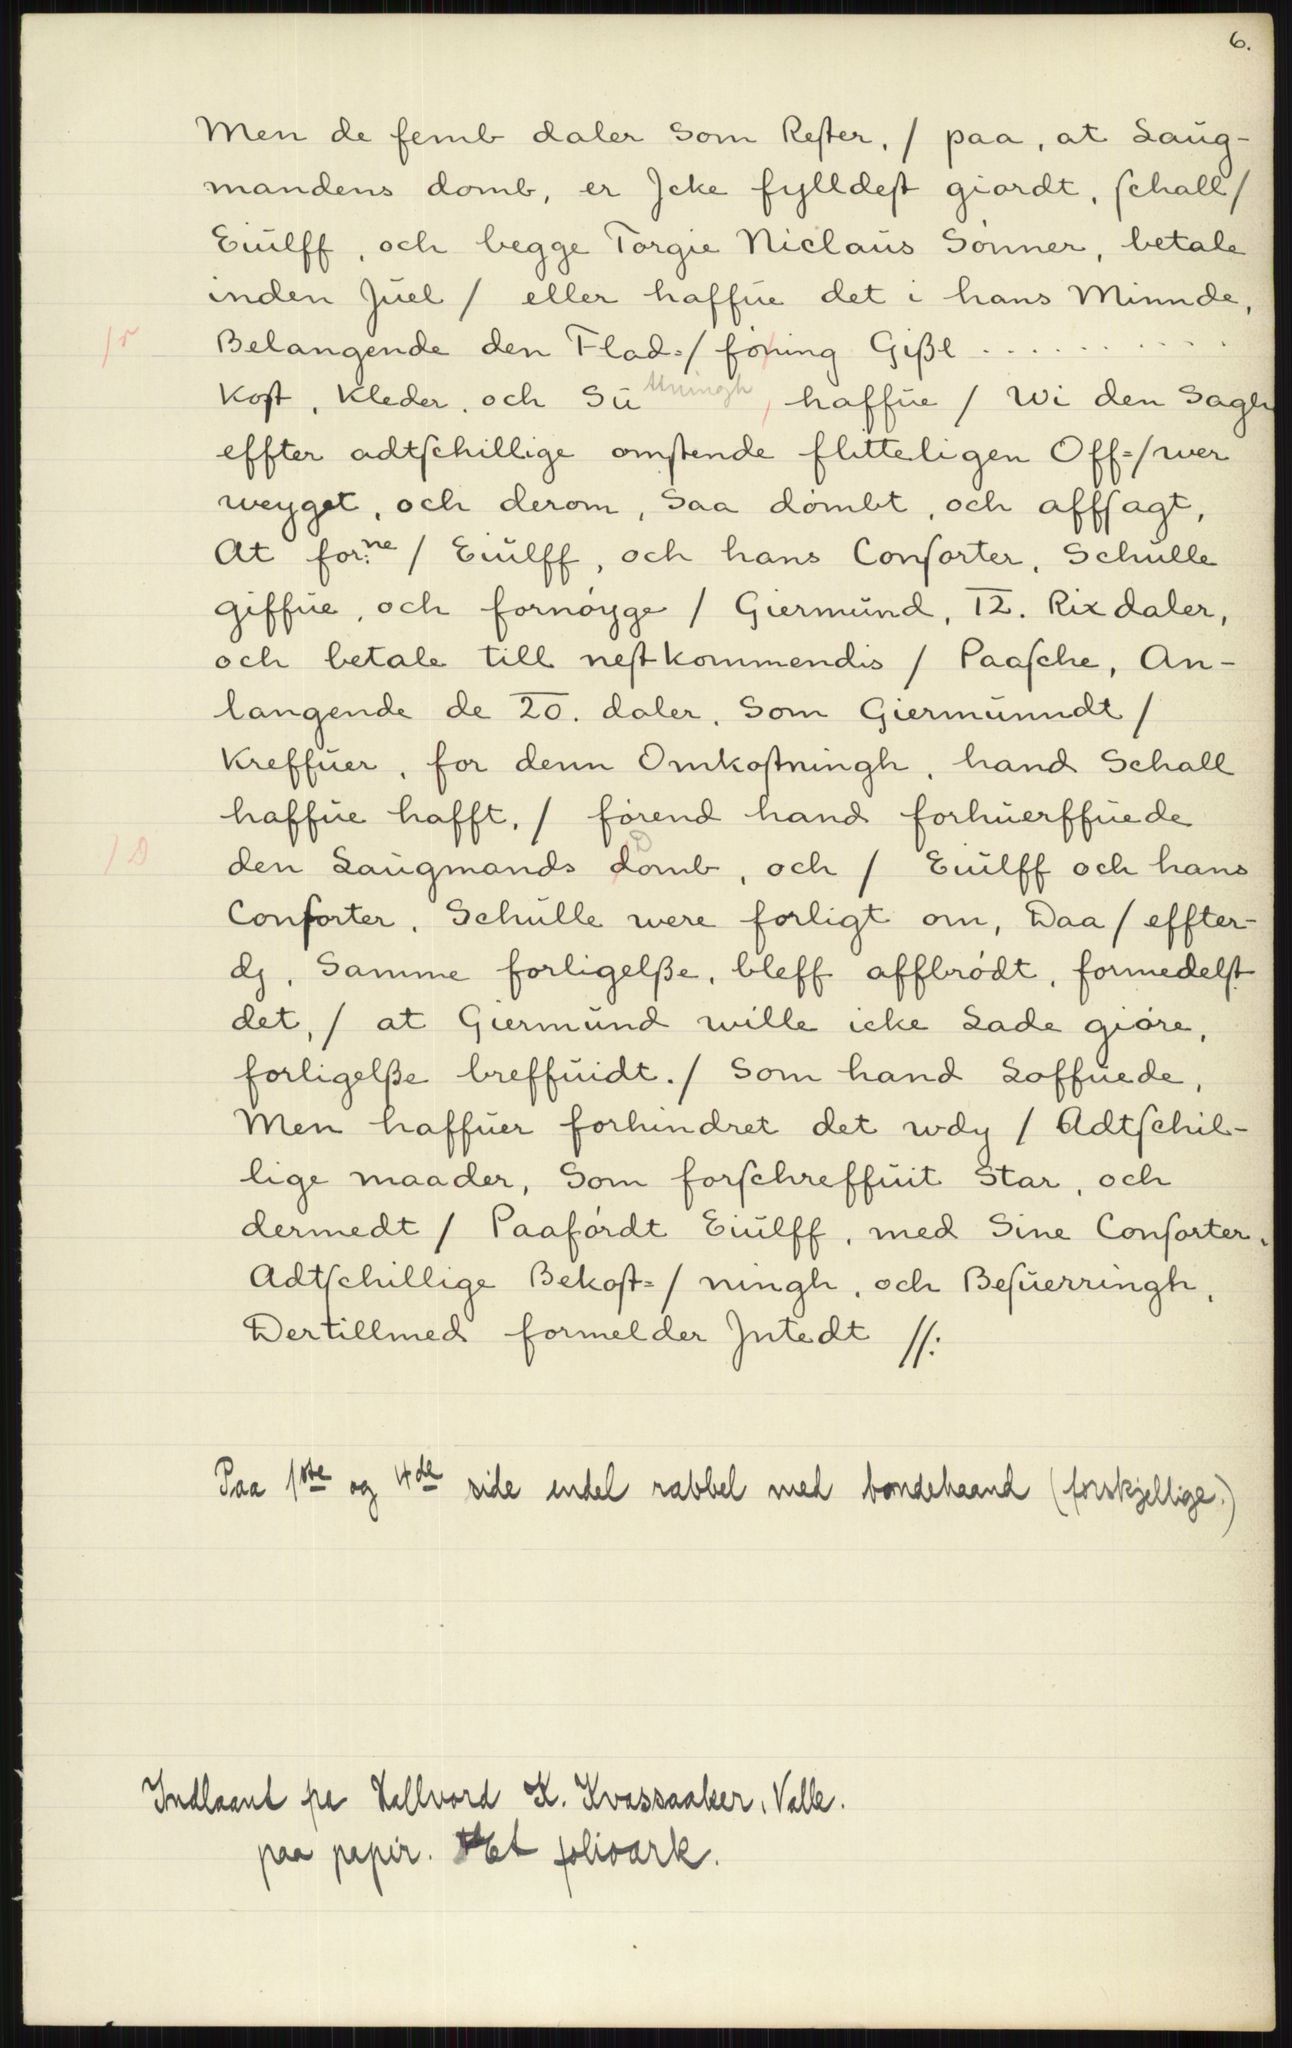 6.
Men de femb daler Som Rester, / paa, at Laug-
mandens domb, er Jcke fylldest giordt, schall /
Eiulff, och begge Torgie Niclaus Sønner, betale
inden Juel / eller haffue det i hans Minnde,
/r Belangende den Flad=/føning Gißl ..........
Kost, Kleder, och Su ttningh, haffue / Wi den Sagh
effter adtschillige omstende flitteligen Off=/wer
weyget, och derom, Saa dømbt, och affsagt,
At for:ne / Eiulff, och hans Consorter, Schulle
giffue, och fornøyge / Giermund, 12. Rixdaler,
och betale till nestkommendis / Paasche, An-
langende de 20. daler, Som Giermunndt /
Kreffuer, for denn Omkostningh, hand Schall
haffue hafft, / førend hand forhuerffuede
/D den Laugmands domb, och / Eiulff och hans
Consorter, Schulle were forligt om, Daa / effter-
dj, Samme forligelße, bleff affbrødt, formedelst
det, / at Giermund wille icke Lade giøre,
forligelße breffuidt. / Som hand Loffuede,
Men haffuer forhindret det wdy / Adtschil-
lige maader, Som forschreffuit Star, och
dermedt / Paaførdt Eiulff, med Sine Consorter,
Adtschillige Bekost=/ningh, och Besuerringh,
Dertillmed formelder Jntedt //:
Paa 1ste og 4de side endel rabbel med bondehaand (forskjellige.)
Indlaant fra Hallvord K. Kvassaaker, Valle.
paa papir. Et folioark.